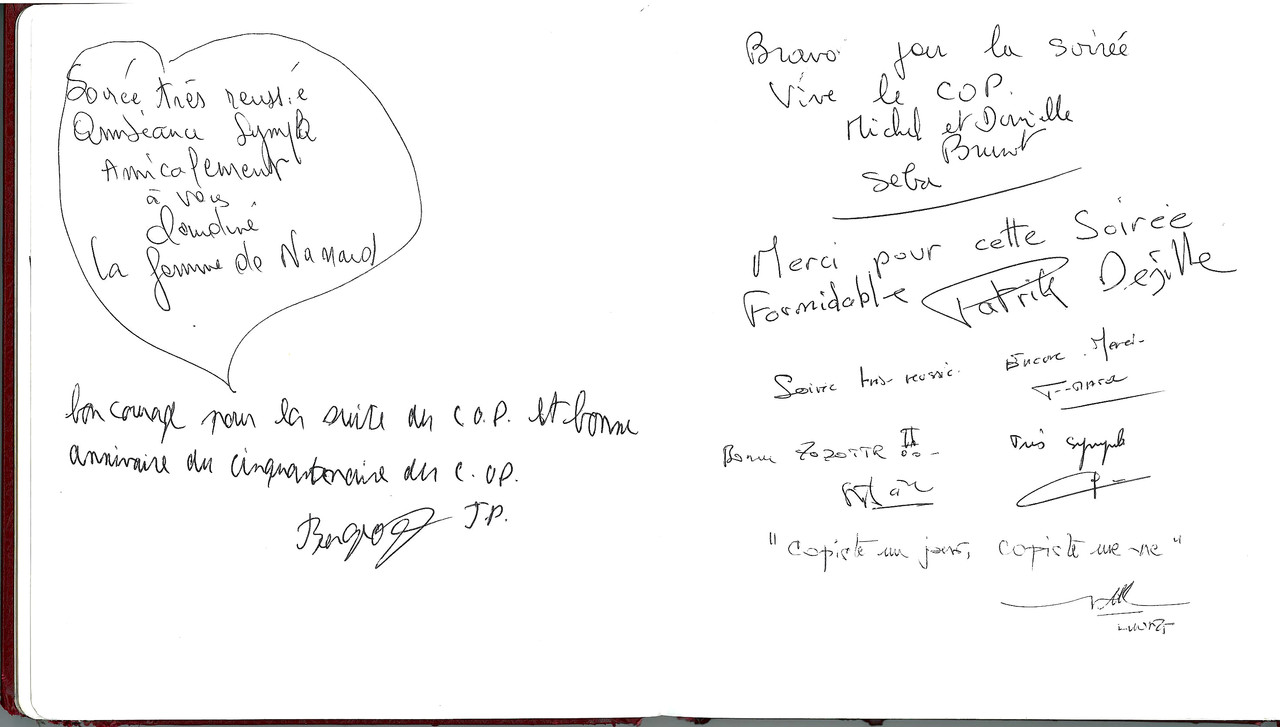 Soirée très reussié
Ambéance Sympa
Amicalement
à vous
la femme de Nanard
bon courage pour la suite du C.O.P. et bonne
annivaire du cinquantenaire du C.OP.
J.P.
Bravo pour la soirée
Vive le COP.
Michel et Danielle
Brunot
Seba
Merci pour cette Soirée
Formidable Patrik
Soirée très réussie.
Encore Merci-
Bonne II
Très sympa
"Copiste un jour, copiste une vie"